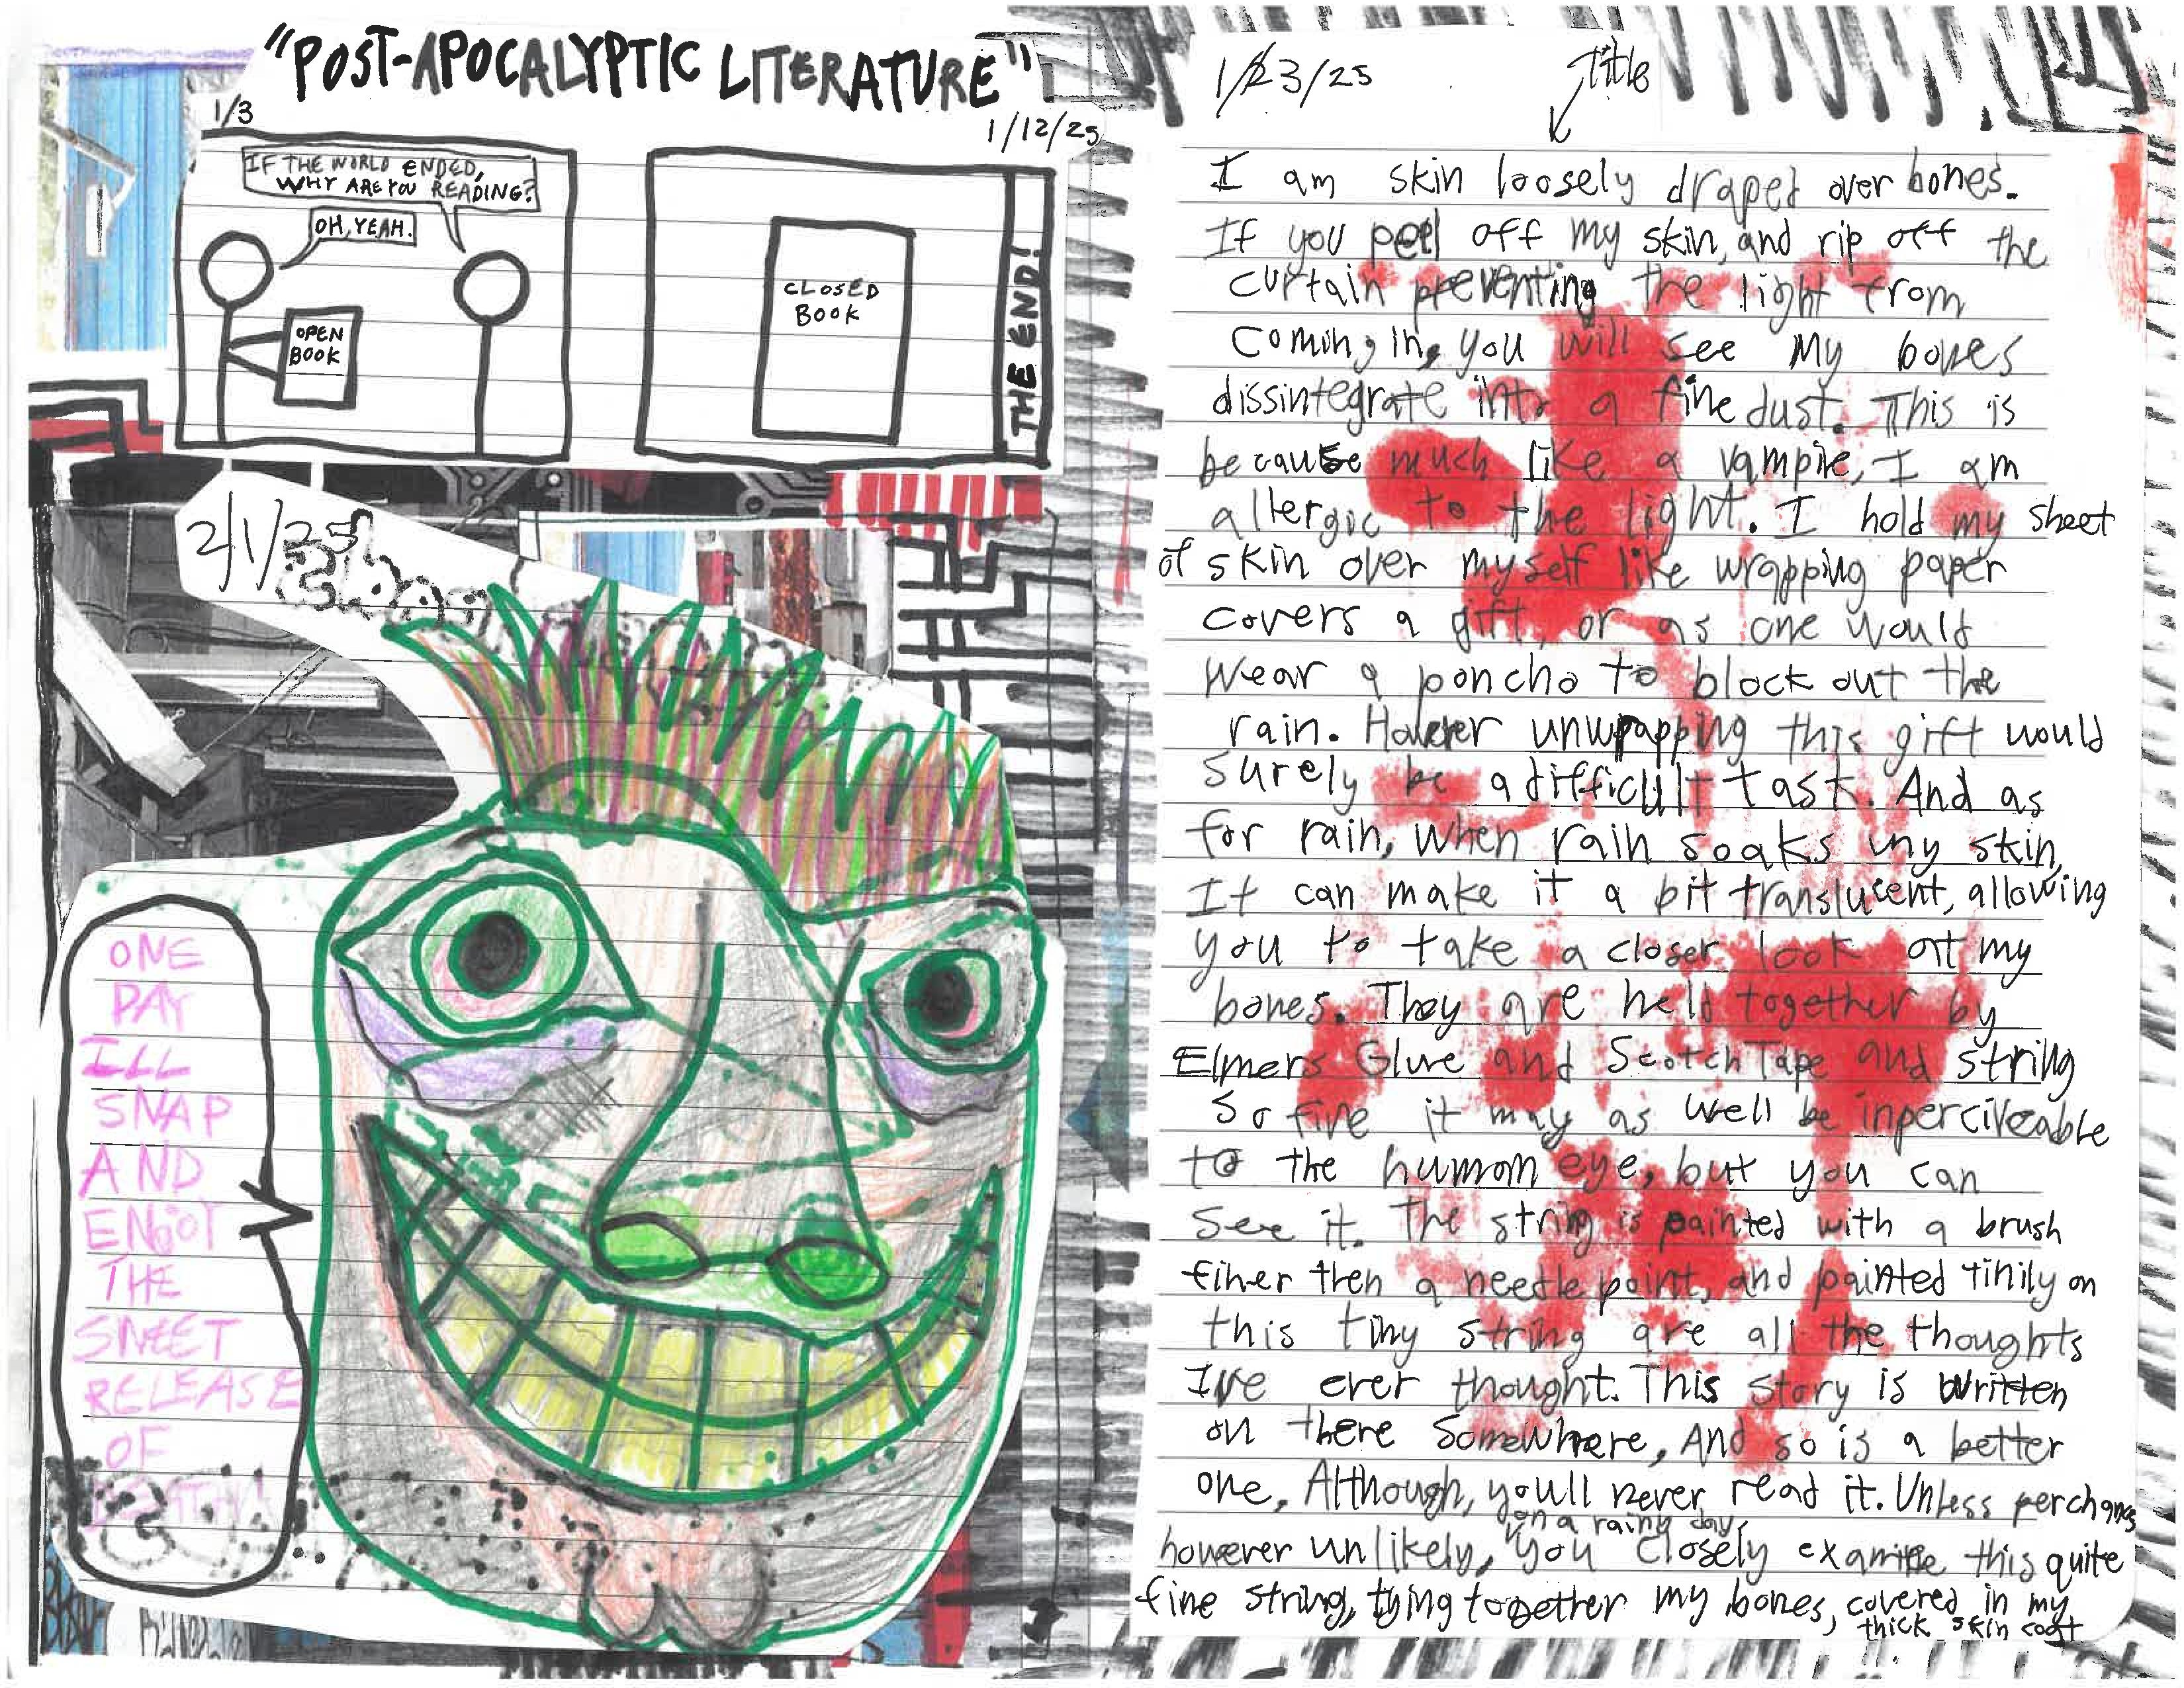 "POST-APOCALYPTIC LITERATURE"
1/3
1/12/25
IF THE WORLD ENDED,
WHY ARE YOU READING?
OH, YEAH.
OPEN
BOOK
CLOSED
BOOK
THE END!
2/1/25
ONE
DAY
ILL
SNAP
AND
ENJOY
THE
SWEET
RELEASE
OF
DEATH
1/23/25
title
I am skin loosely draped over bones.
If you peel off my skin, and rip off the
curtain preventing the light from
coming in, you will see my bones
dissintegrate into a fine dust. This is
because much like a vampire, I am
allergic to the light. I hold my sheet
of skin over myself like wrapping paper
covers a gift, or as one would
wear a poncho to block out the
rain. However unwrapping this gift would
surely be a difficult task. And as
for rain, when rain soaks my skin,
It can make it a bit translucent, allowing
you to take a closer look at my
bones. They are held together by
Elmers Glue and Scotch Tape and string
so fine it may as well be inperciveable
to the human eye, but you can
see it. The string is painted with a brush
finer then a needle point, and painted tinily on
this tiny string are all the thoughts
I've ever thought. This story is written
on there somewhere, And so is a better
one, Although, youll never read it. Unless perchance
on a rainy day,
however unlikely, you closely examine this quite
fine string, tying together my bones, covered in my
thick skin coat